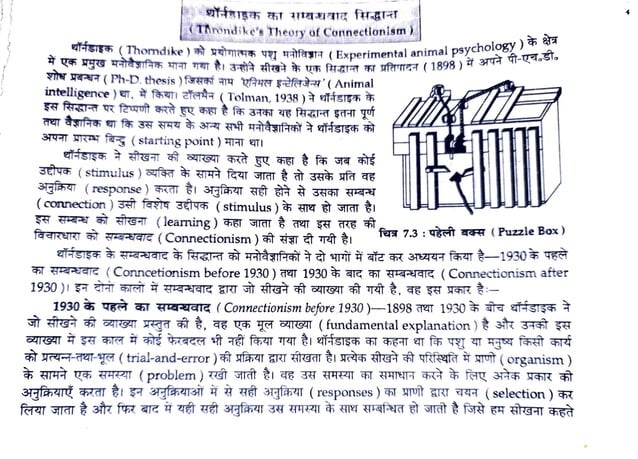 थॉर्नडाइक का सम्बन्धवाद सिद्धान्त
( Throndike's Theory of Connectionism )
थॉर्नडाइक ( Thorndike ) को प्रयोगात्मक पशु मनोविज्ञान ( Experimental animal psychology ) के क्षेत्र
में एक प्रमुख मनोवैज्ञानिक माना गया है। उन्होंने सीखने के एक सिद्धान्त का प्रतिपादन ( 1898 ) में अपने पी-एच॰डी॰
शोध प्रबन्धन ( Ph-D. thesis ) जिसका नाम 'एनिमल इन्टेलिजेन्स' ( Animal
intelligence ) था, में किया। टॉलमैन ( Tolman, 1938 ) ने थॉर्नडाइक के
इस सिद्धान्त पर टिप्पणी करते हुए कहा है कि उनका यह सिद्धान्त इतना पूर्ण
तथा वैज्ञानिक था कि उस समय के अन्य सभी मनोवैज्ञानिकों ने थॉर्नडाइक को
अपना प्रारम्भ बिन्दु ( starting point ) माना था।
थॉर्नडाइक ने सीखना की व्याख्या करते हुए कहा है कि जब कोई
उद्दीपक ( stimulus ) व्यक्ति के सामने दिया जाता है तो उसके प्रति वह
अनुक्रिया ( response ) करता है। अनुक्रिया सही होने से उसका सम्बन्ध
( connection ) उसी विशेष उद्दीपक ( stimulus ) के साथ हो जाता है।
इस सम्बन्ध को सीखना ( learning ) कहा जाता है तथा इस तरह की
विचारधारा को सम्बन्धवाद ( Connectionism ) की संज्ञा दी गयी है।
चित्र 7.3 : पहेली बक्स ( Puzzle Box )
थॉर्नडाइक के सम्बन्धवाद के सिद्धान्त को मनोवैज्ञानिकों ने दो भागों में बाँट कर अध्ययन किया है—1930 के पहले
का सम्बन्धवाद ( Conncetionism before 1930 ) तथा 1930 के बाद का सम्बन्धवाद ( Connectionism after
1930 )। इन दोनों कालों में सम्बन्धवाद द्वारा जो सीखने की व्याख्या की गयी है, वह इस प्रकार है:-
1930 के पहले का सम्बन्धवाद ( Connectionism before 1930 )—1898 तथा 1930 के बीच थॉर्नडाइक ने
जो सीखने की व्याख्या प्रस्तुत की है, वह एक मूल व्याख्या ( fundamental explanation ) है और उनकी इस
व्याख्या में इस काल में कोई फेरबदल भी नहीं किया गया है। थॉर्नडाइक का कहना था कि पशु या मनुष्य किसी कार्य
को प्रत्यन्न-तथा-भूल ( trial-and-error ) की प्रक्रिया द्वारा सीखता है। प्रत्येक सीखने की परिस्थिति में प्राणी ( organism )
के सामने एक समस्या ( problem ) रखी जाती है। वह उस समस्या का समाधान करने के लिए अनेक प्रकार की
अनुक्रियाएँ करता है। इन अनुक्रियाओं में से सही अनुक्रिया ( responses ) का प्राणी द्वारा चयन ( selection ) कर
लिया जाता है और फिर बाद में यही सही अनुक्रिया उस समस्या के साथ सम्बन्धित हो जाती है जिसे हम सीखना कहते